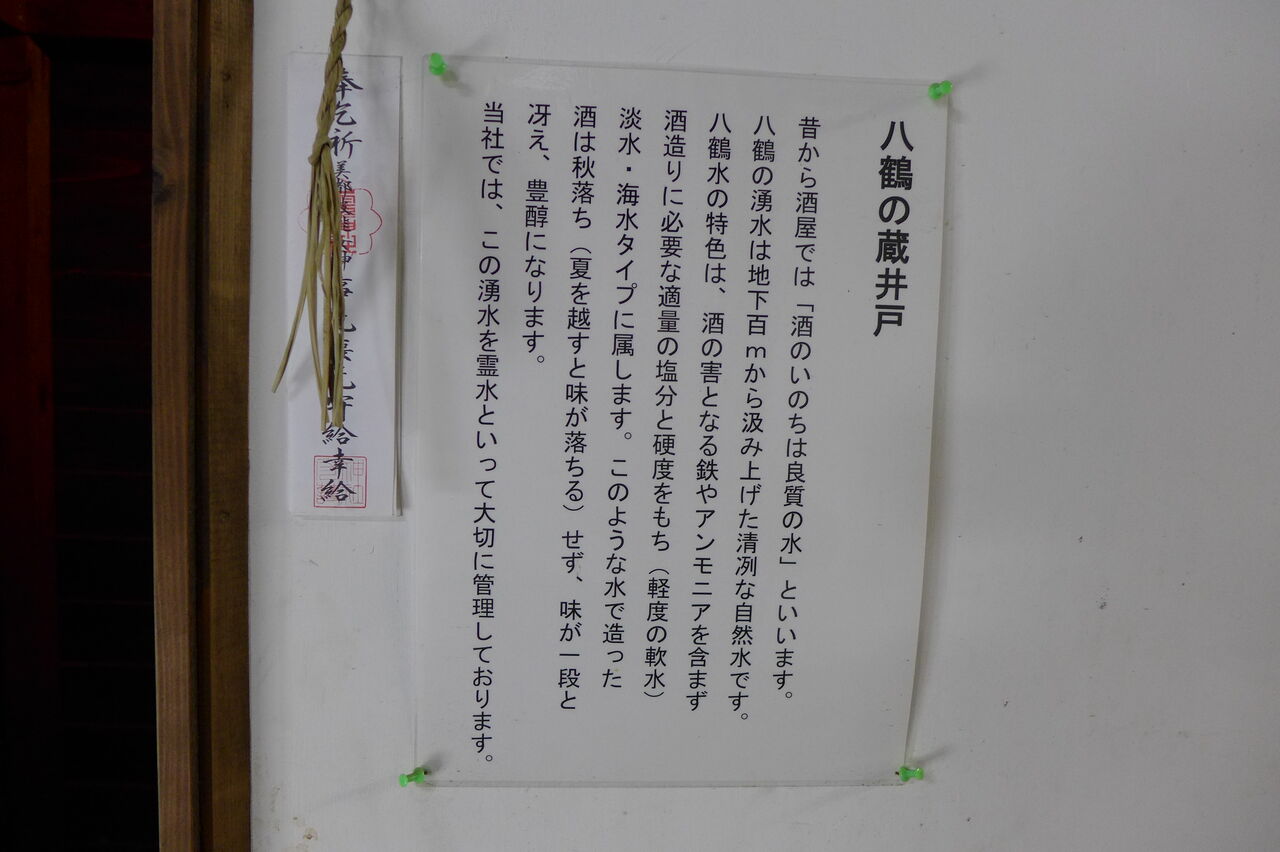 八鶴の蔵井戸
昔から酒屋では「酒のいのちは良質の水」といいます。
八鶴の湧水は地下百ｍから汲み上げた清冽な自然水です。
八鶴水の特色は、酒の害となる鉄やアンモニアを含まず
酒造りに必要な適量の塩分と硬度をもち（軽度の軟水）
淡水・海水タイプに属します。このような水で造った
酒は秋落ち（夏を越すと味が落ちる）せず、味が一段と
冴え、豊醇になります。
当社では、この湧水を霊水といって大切に管理しております。
奉乞祈 給幸給